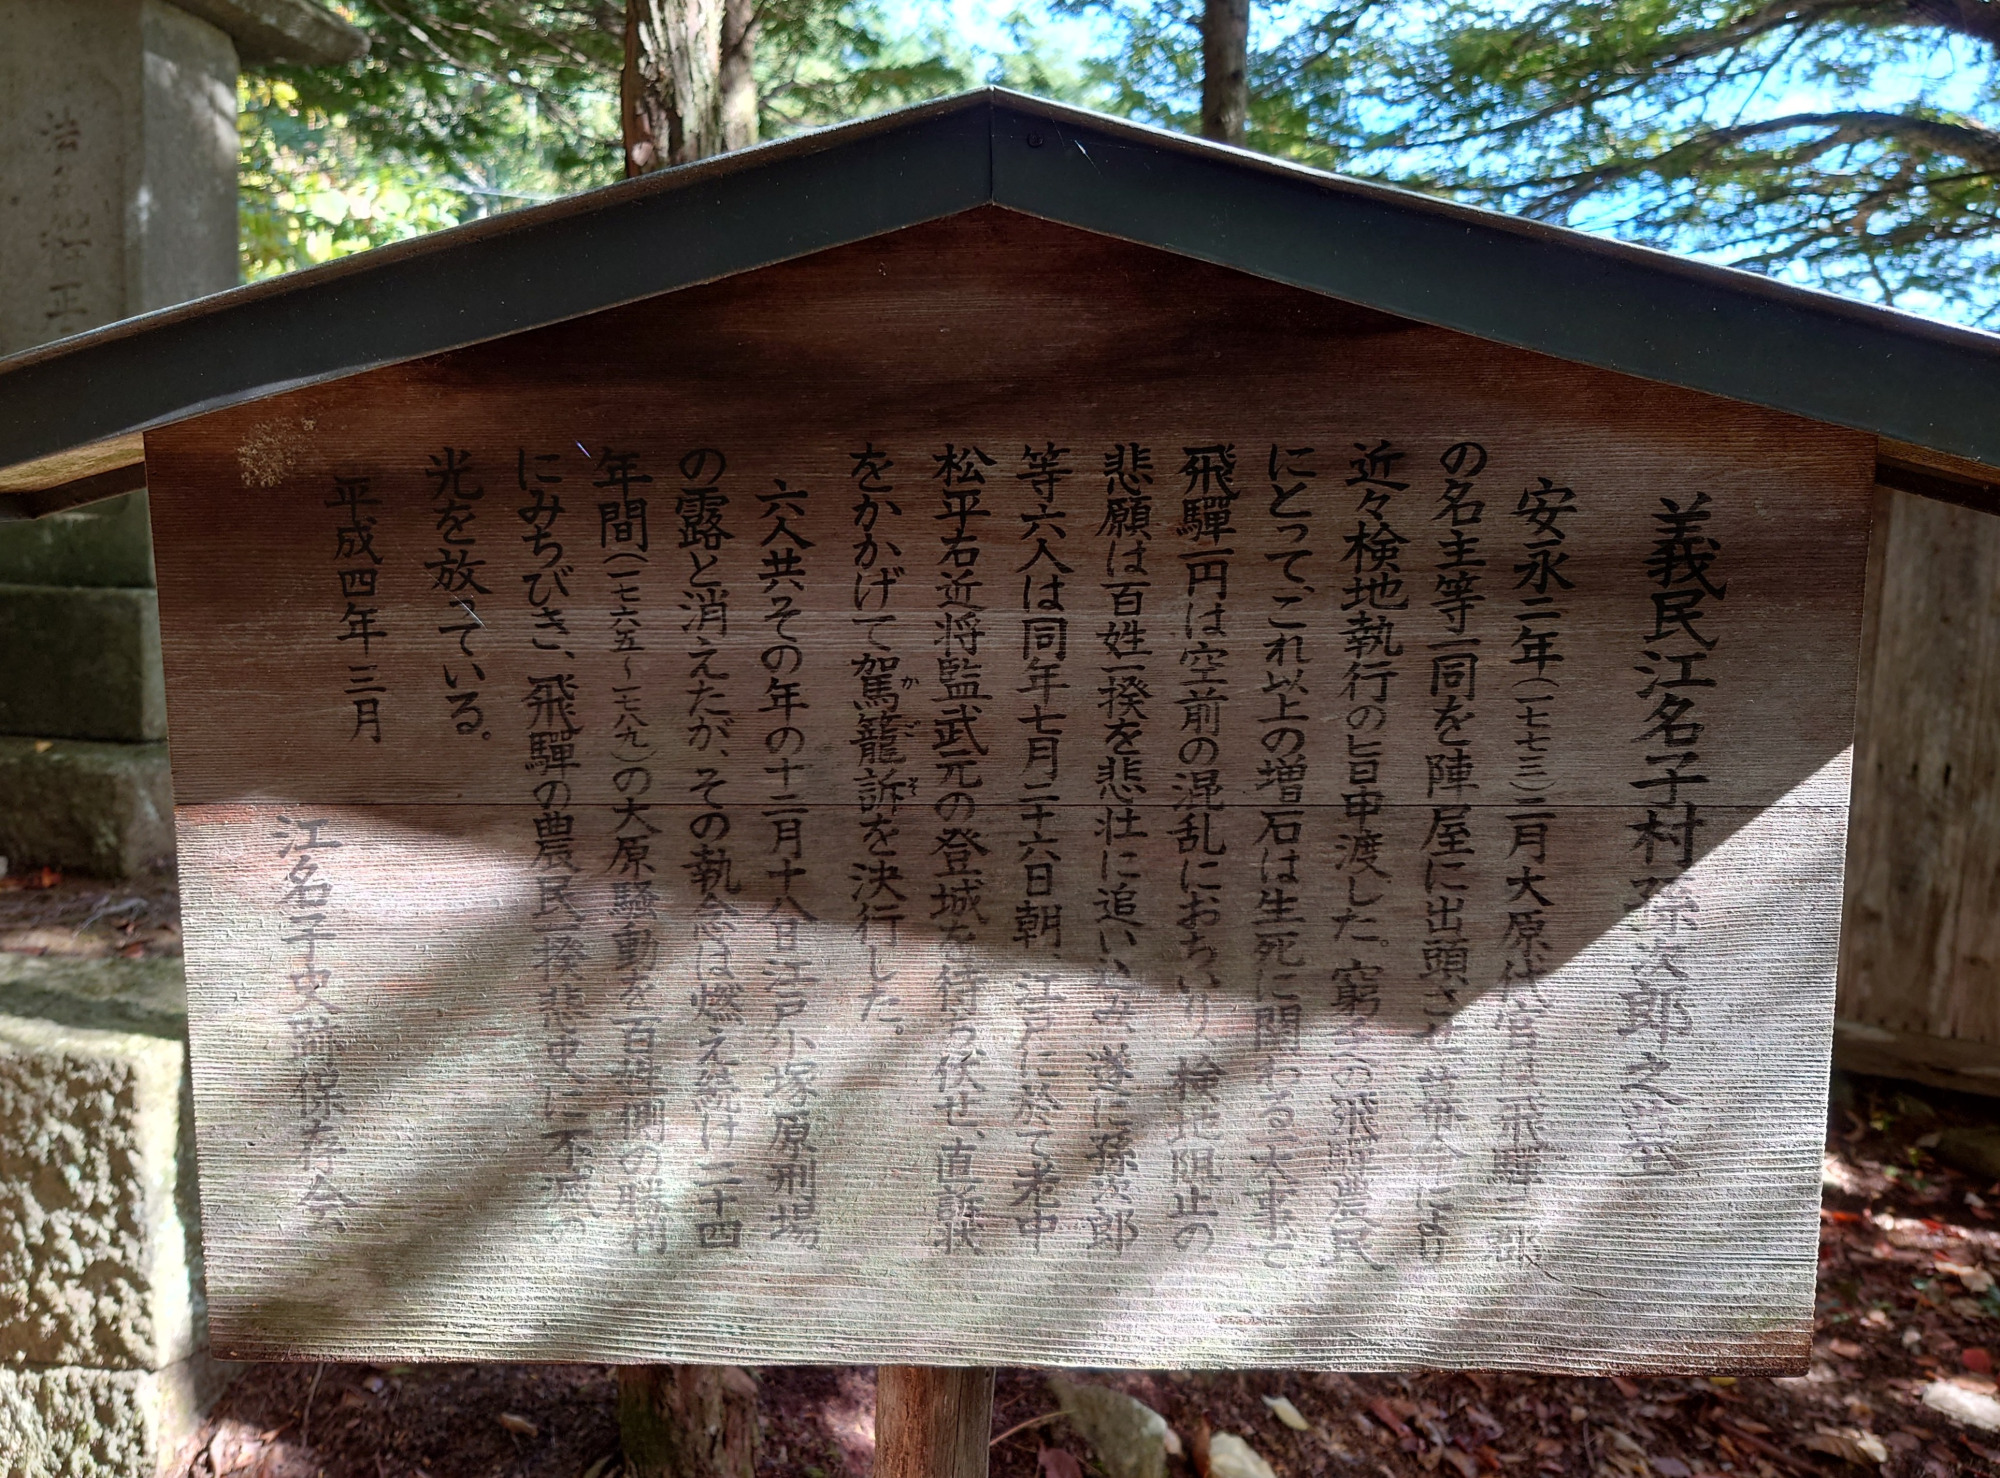 義民江名子村孫次郎之墓
安永二年(一七七三)二月大原代官は飛騨三郡
の名主等一同を陣屋に出頭させ幕命により
近々検地執行の旨申渡した。窮乏の飛騨農民
にとってこれ以上の増石は生死に関わる大事で
飛驒一円は空前の混乱におちいり、検地阻止の
悲願は百姓一揆を悲壮に追い込み、遂に孫次郎
等六人は同年七月二十六日朝、江戸に於て老中
松平右近将監武元の登城を待ち伏せ、直訴状
をかかげて駕籠訴を決行した。
かごそ
六人共その年の十二月十八日江戸小塚原刑場
の露と消えたが、その執念は燃え続け二十四
年間(一七六五〜一七八九)の大原騒動を百姓側の勝利
にみちびき、飛驒の農民一揆悲史に不滅の
光を放っている。
平成四年三月
江名子史跡保存会